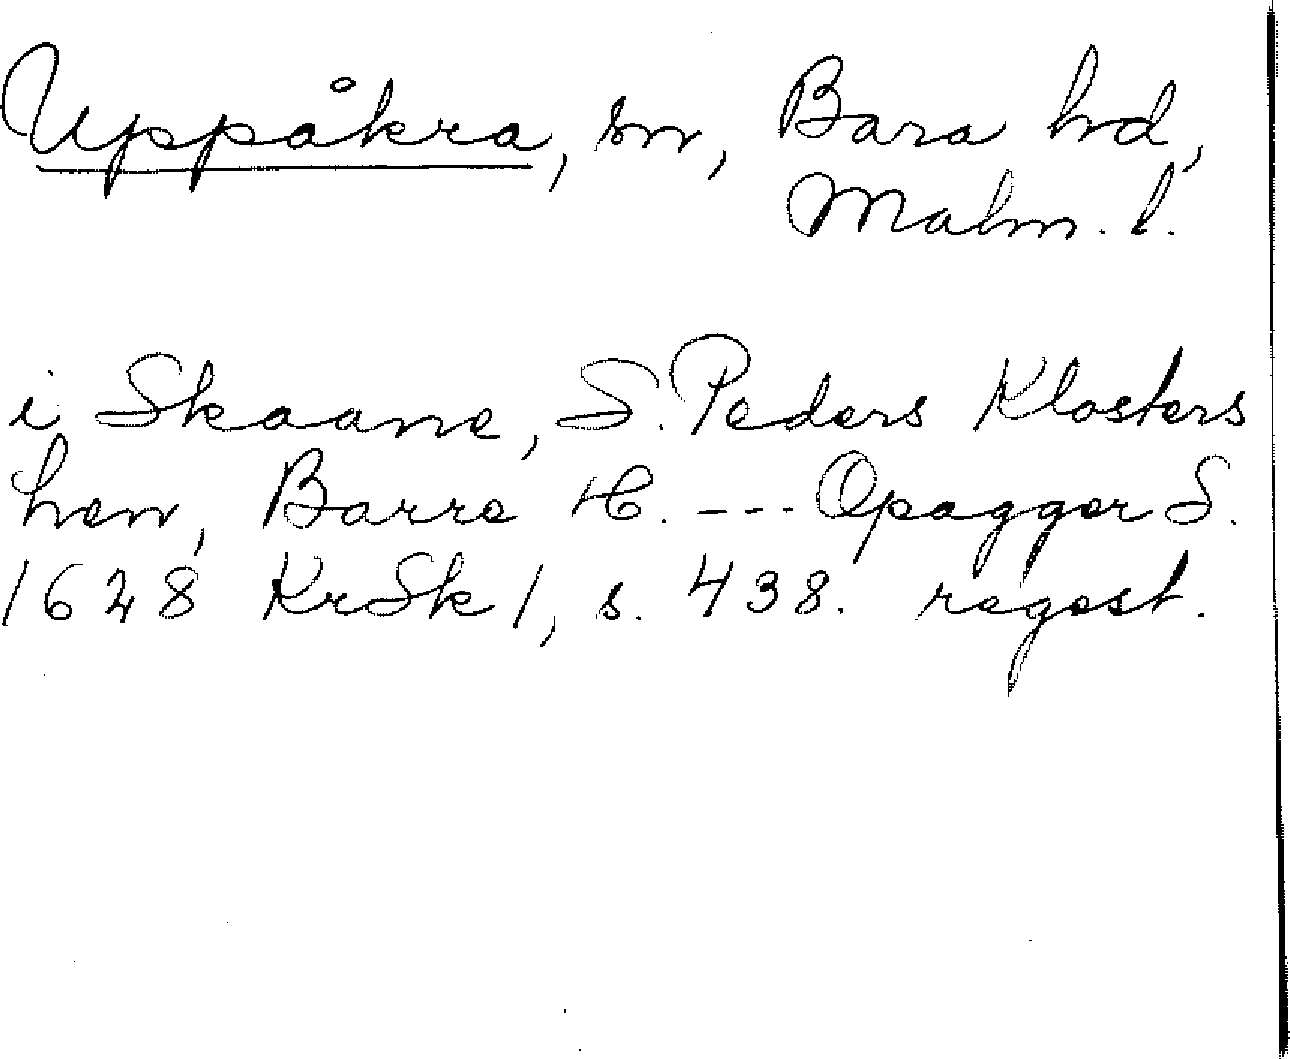 Uppåkra, sn, Bara hd,
Malm. l.
i Skaane, S. Peders Klosters
len, Barre H. --- Opagger S.
1628 KrSk 1, s. 438. regest.